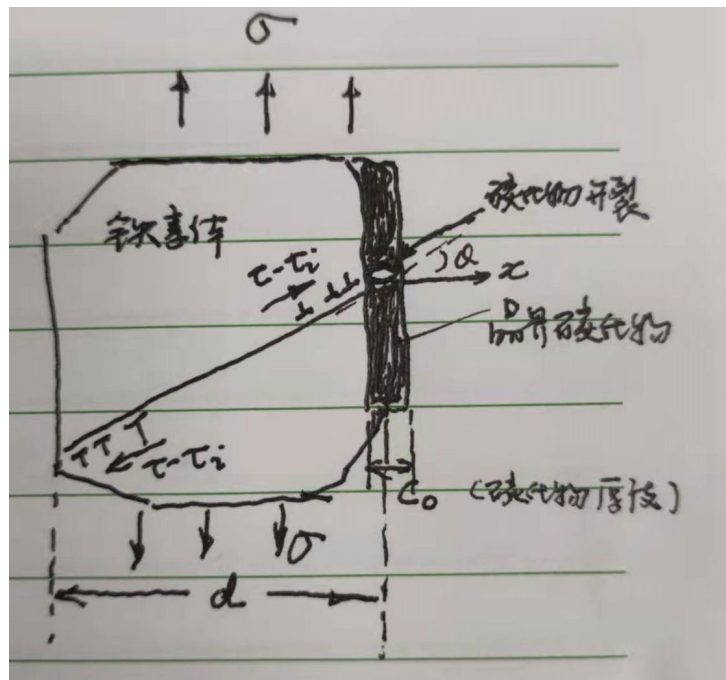 σ
碳化物开裂
铁素体
τ-τi
θ
x
晶界碳化物
τ-τi
C₀ (碳化物厚度)
σ
d